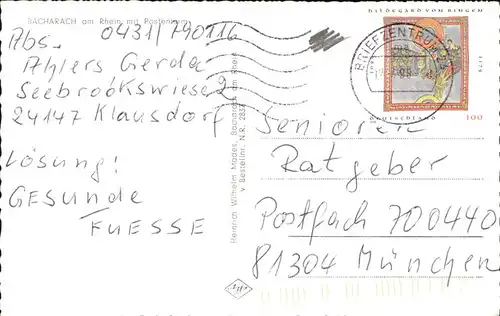 BACHARACH am Rhein mit Postenturm
0431/790116
Abs.
Ahlers Gerda
Seebrookswiese 2
24147 Klausdorf
Lösung!
GESUNDE
FUESSE
Heinrich Wilhelm Bacharach am Rhein
Bestellnr. N.R.
HILDEGARD VON BINGEN
BRIEFZENTRUM
DEUTSCHLAND 100
Senioren
Ratgeber
Postfach 700440
81304 München